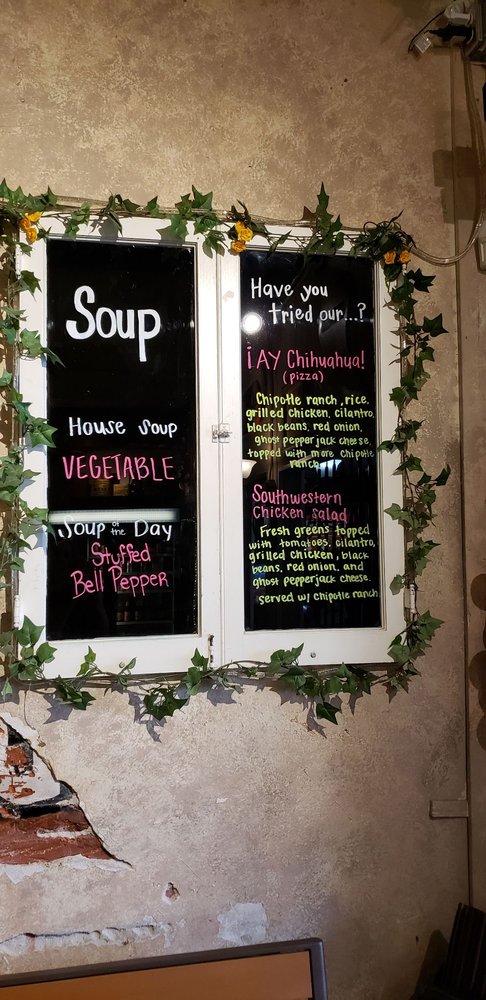 Soup
House Soup
VEGETABLE
Soup of the Day
Stuffed
Bell Pepper
Have you
tried our...?
¡AY Chihuahua!
(pizza)
Chipotle ranch, rice,
grilled chicken, cilantro,
black beans, red onion,
ghost pepperjack cheese,
topped with more chipotle
ranch
Southwestern
Chicken salad
Fresh greens topped
with tomatoes, cilantro,
grilled chicken, black
beans, red onion, and
ghost pepperjack cheese.
served w/ chipotle ranch.